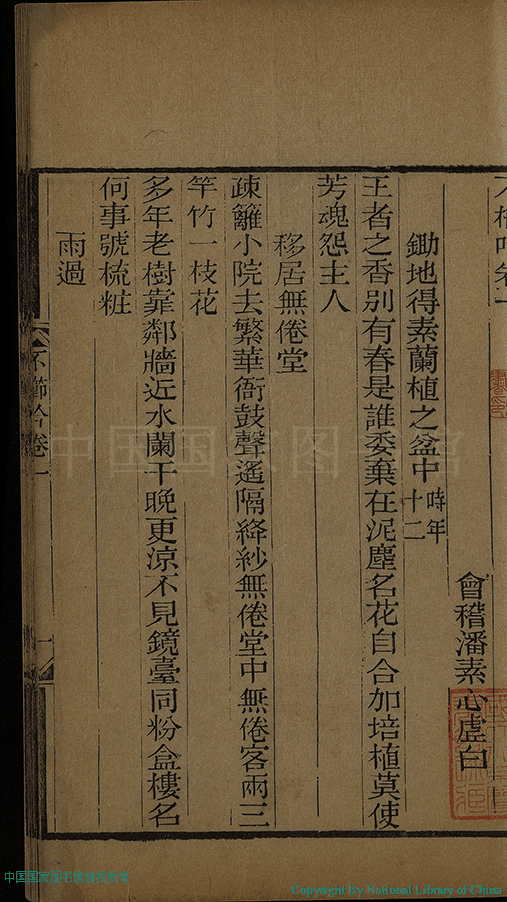 不櫛吟卷一
會稽潘素心虛白
鋤地得素蘭植之盆中時年十二
王者之香別有春是誰委棄在泥塵名花自合加培植莫使
芳魂怨主人
移居無倦堂
疎籬小院去繁華衙鼓聲遙隔絳紗無倦堂中無倦客兩三
竿竹一枝花
多年老樹靠鄰牆近水闌干晚更涼不見鏡臺同粉盒樓名
何事號梳粧
雨過
不櫛吟卷一
一
中国国家图书馆
Copyright By National Library of China